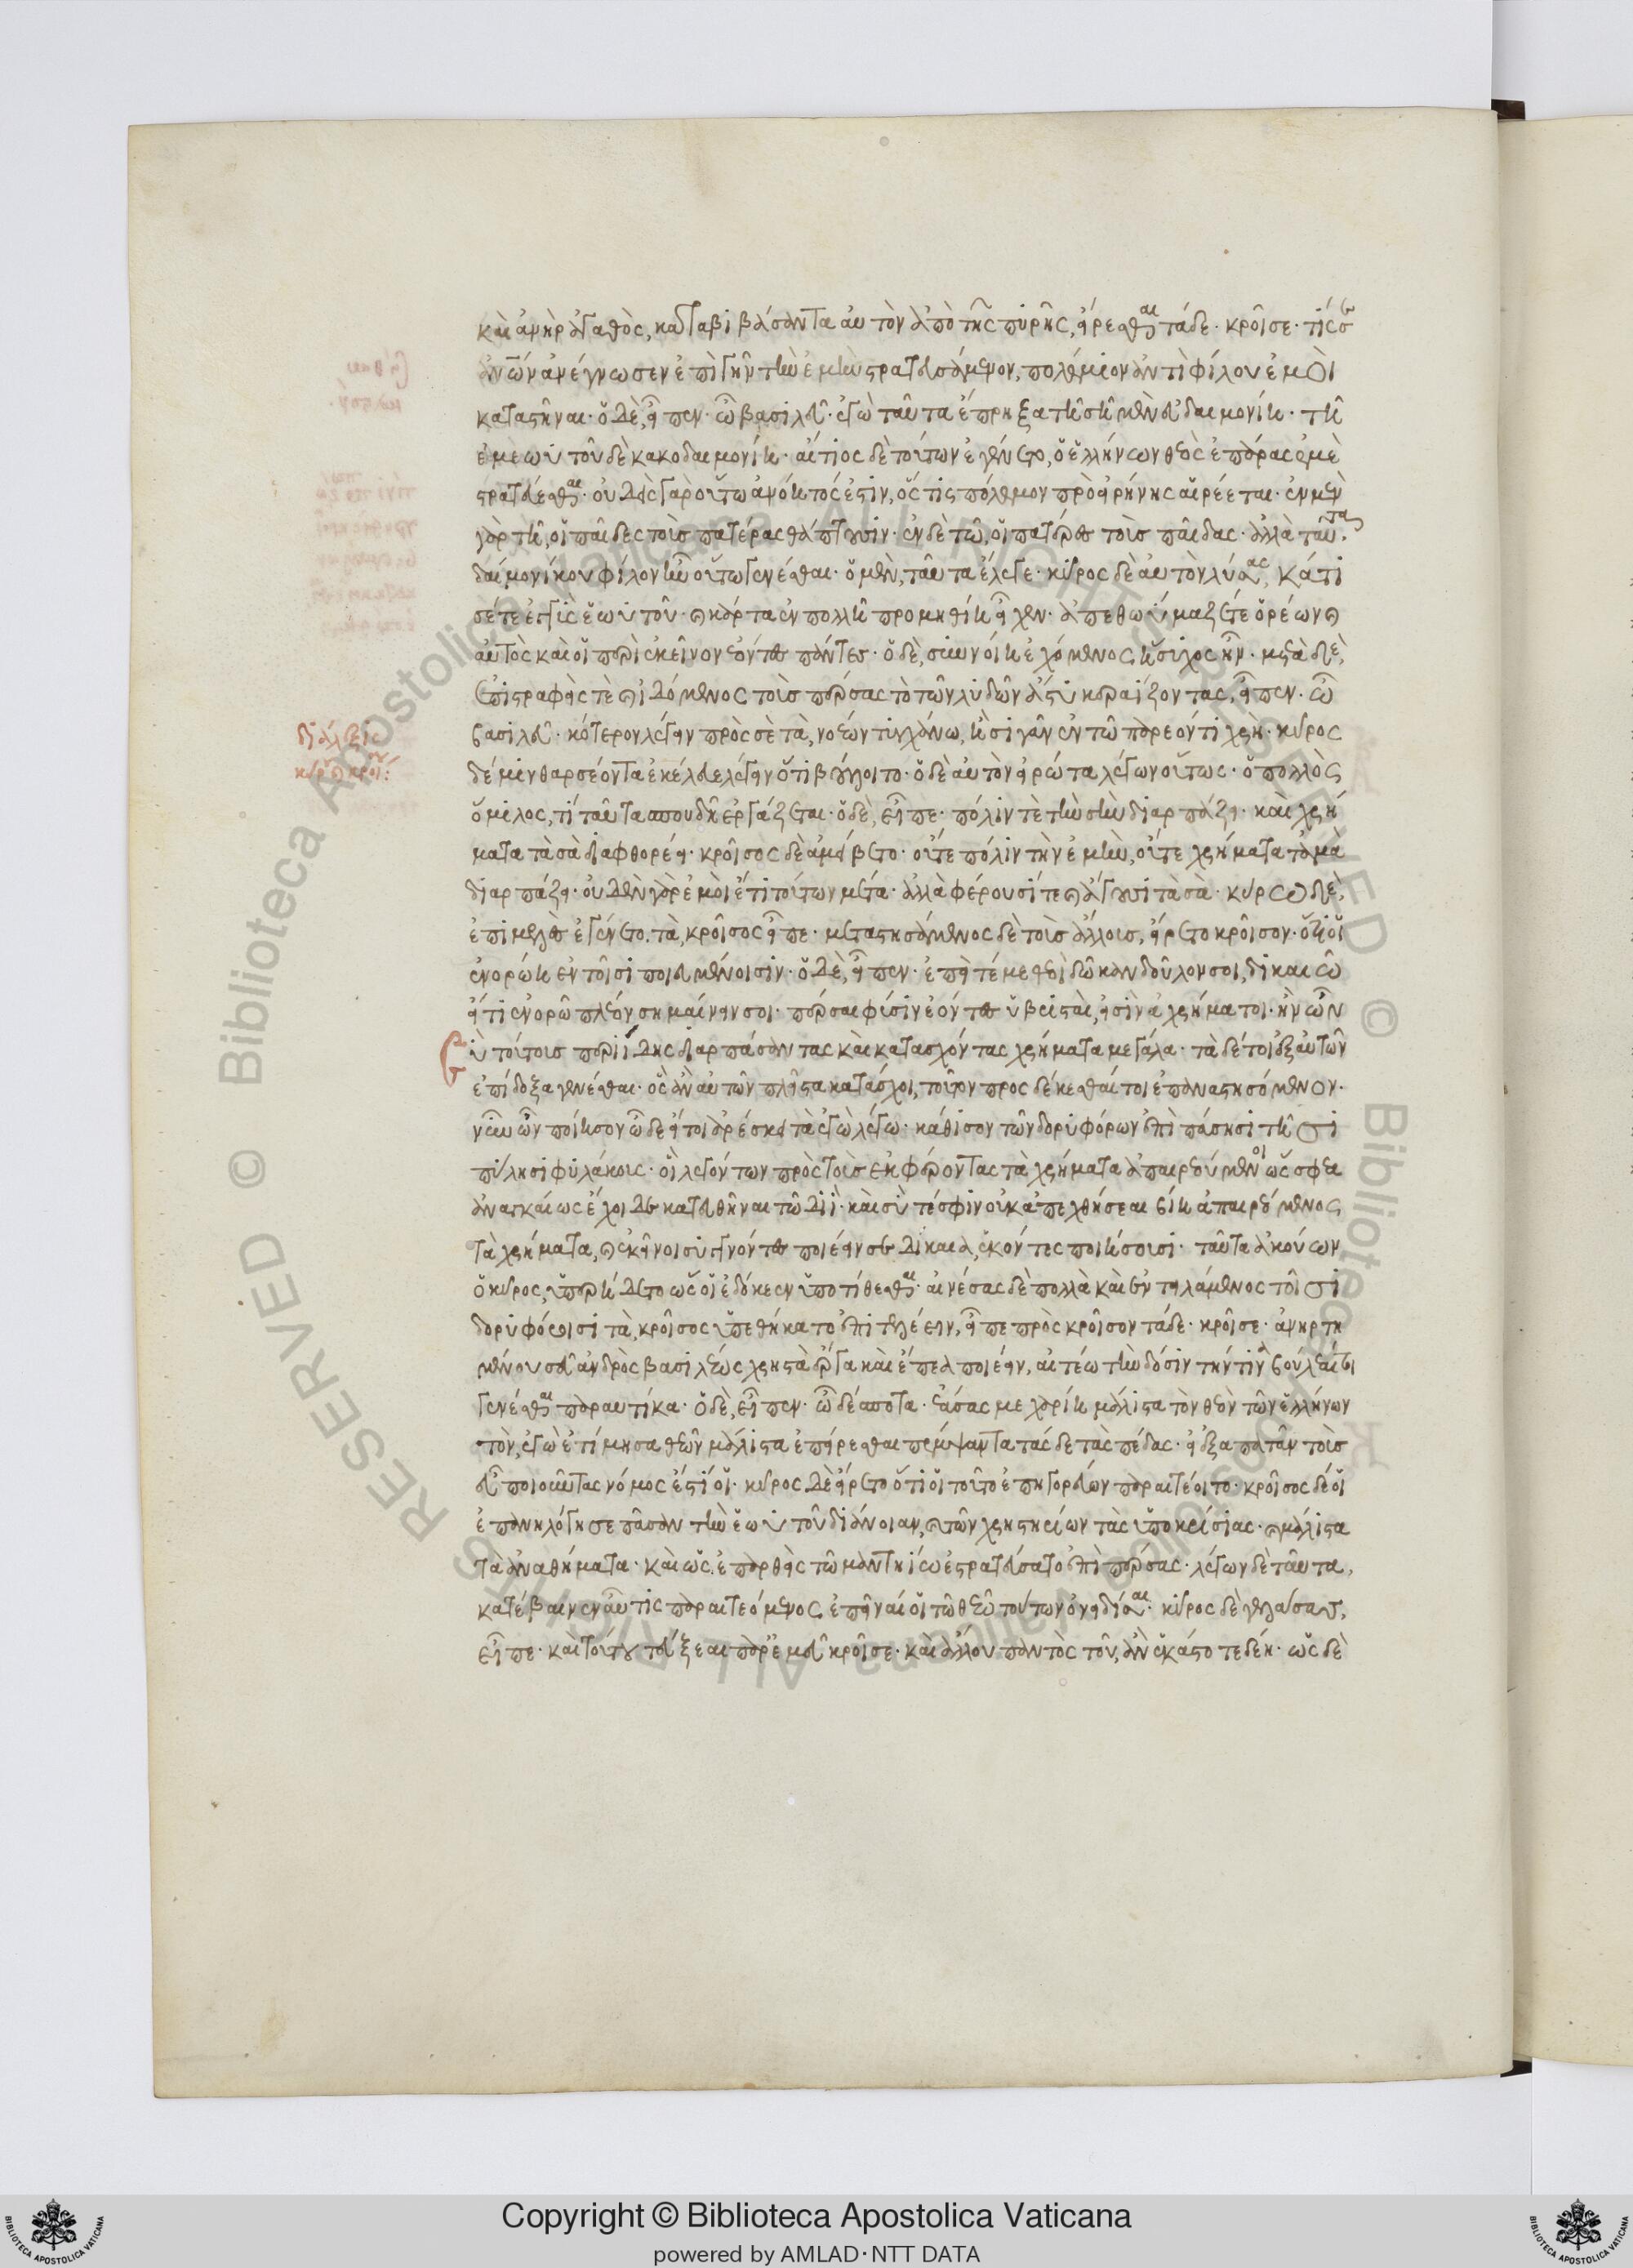 καὶ ἀνὴρ ἀγαθὸς, καταβιβάσαντα αὐτὸν ἀπὸ τῆς πυρῆς, εἴρεσθαι τάδε· κροῖσε· τίς σε
ἀνθρώπων ἀνέγνωσεν ἐπὶ γῆν τὴν ἐμὴν στρατευσάμενον, πολέμιον ἀντὶ φίλου ἐμοὶ
καταστῆναι· ὁ δὲ, εἶπεν· ὦ βασιλεῦ· ἐγὼ ταῦτα ἔπρηξα τῇ σῇ μὲν εὐδαιμονίῃ· τῇ
ἐμεωυτοῦ δὲ κακοδαιμονίῃ· αἴτιος δὲ τούτων ἐγένετο, ὁ ἑλλήνων θεὸς ἐπάρας ἐμὲ
στρατεύεσθαι· οὐδεὶς γὰρ οὕτω ἀνόητός ἐστιν, ὅς τις πόλεμον πρὸ εἰρήνης αἱρέεται· ἐν μὲν
γὰρ τῇ, οἱ παῖδες τοὺς πατέρας θάπτουσιν· ἐν δὲ τῷ, οἱ πατέρες τοὺς παῖδας· ἀλλὰ ταῦτα
δαίμονί κου φίλον ἦν οὕτω γενέσθαι· ὁ μὲν, ταῦτα ἔλεγε· κῦρος δὲ αὐτὸν λύσας, κάτι
σέ τε ἐγγὺς ἑωυτοῦ· καὶ κάρτα ἐν πολλῇ προμηθίῃ εἶχεν· ἀπεθωύμαζέ τε ὁρέων καὶ
αὐτὸς καὶ οἱ περὶ ἐκεῖνον ἐόντες πάντες· ὁ δὲ, συννοίῃ ἐχόμενος, ἥσυχος ἦν· μετὰ δὲ,
ἐπιστραφείς τε καὶ ἰδόμενος τοὺς πέρσας τὸ τῶν λυδῶν ἄστυ κεραΐζοντας, εἶπεν· ὦ
βασιλεῦ· κότερον λέγειν πρὸς σὲ τὰ, νοέων τυγχάνω, ἢ σιγᾶν ἐν τῷ παρεόντι χρή· κῦρος
δέ μιν θαρσέοντα ἐκέλευε λέγειν ὅτι βούλοιτο· ὁ δὲ αὐτὸν εἰρώτα λέγων οὕτως· ὁ πολλὸς
ὅμιλος, τί ταῦτα σπουδῇ ἐργάζεται· ὁ δὲ, εἶπε· πόλιν τε τὴν σὴν διαρπάζει· καὶ χρή
ματα τὰ σὰ διαφθορέει· κροῖσος δὲ ἀμείβετο· οὔτε πόλιν τὴν ἐμὴν, οὔτε χρήματα τὰμὰ
διαρπάζει· οὐδὲν γὰρ ἐμοὶ ἔτι τούτων μέτα· ἀλλὰ φέρουσί τε καὶ ἄγουσι τὰ σὰ· κύρῳ δὲ,
ἐπιμελὲς ἐγένετο. τὰ, κροῖσος εἶπε· μεταστησάμενος δὲ τοὺς ἄλλους, εἴρετο κροῖσον· ὅτι οἱ
ἐνορώῃ ἐν τοῖσι ποιευμένοισιν· ὁ δὲ, εἶπεν· ἐπεί τέ με θεοὶ δῶκαν δοῦλον σοι, δικαιῶ
εἴ τι ἐνορῶ πλέον σημαίνειν σοι· πέρσαι φύσιν ἐόντες ὑβρισταὶ, εἰσὶν ἀχρήματοι· ἢν ὦν
σὺ τούτοις περιίδῃς διαρπάσαντας καὶ κατασχόντας χρήματα μεγάλα· τὰ δέ τοι ἐξ αὐτῶν
ἐπίδοξα γενέσθαι· ὃς ἂν αὐτῶν πλεῖστα κατάσχοι, τοῦτον προσδέκεσθαί τοι ἐπαναστησόμενον·
νῦν ὦν ποίησον ὧδε εἴ τοι ἀρέσκει τὰ ἐγὼ λέγω· κάθισον τῶν δορυφόρων ἐπὶ πάσῃσι τῇσι
πύλῃσι φυλάκους· οἳ λεγόντων πρὸς τοὺς ἐκφέροντας τὰ χρήματα ἀπαιρεύμενοι ὥς σφεα
ἀναγκαίως ἔχει δεκατευθῆναι τῷ διί· καὶ σύ τέ σφιν οὐκ ἀπεχθήσεαι βίῃ ἀπαιρεύμενος
τὰ χρήματα, καὶ ἐκεῖνοι συγγνόντες ποιέειν σε δίκαια, ἑκόντες ποιήσουσι· ταῦτα ἀκούων
ὁ κῦρος, ὑπερήδετο ὥς οἱ ἐδόκεεν ὑποτίθεσθαι· αἰνέσας δὲ πολλὰ καὶ ἐντειλάμενος τοῖσι
δορυφόροισι τὰ, κροῖσος ὑπεθήκατο ἐπιτελέειν, εἶπε πρὸς κροῖσον τάδε· κροῖσε· ἀνηρτη
μένου σεῦ ἀνδρὸς βασιλέως χρηστὰ ἔργα καὶ ἔπεα ποιέειν, αἰτέω τὴν δόσιν τήν τινα βούλεαί τοι
γενέσθαι παραυτίκα· ὁ δὲ, εἶπεν· ὦ δέσποτα· ἐάσας με χαριῇ μάλιστα τὸν θεὸν τῶν ἑλλήνων
τὸν, ἐγὼ ἐτίμησα θεῶν μάλιστα ἐπείρεσθαι πέμψαντα τάσδε τὰς πέδας· εἰ ἐξαπατᾶν τοὺς
εὖ ποιοῦντας νόμος ἐστί οἱ· κῦρος δὲ εἴρετο ὅτι οἱ τοῦτο ἐπηγορεύων παραιτέοιτο· κροῖσος δέ οἱ
ἐπανηλόγησε πᾶσαν τὴν ἑωυτοῦ διάνοιαν, καὶ τῶν χρηστηρίων τὰς ὑποκρίσιας· καὶ μάλιστα
τὰ ἀναθήματα· καὶ ὡς ἐπαρθεὶς τῷ μαντηίῳ ἐστρατεύσατο ἐπὶ πέρσας· λέγων δὲ ταῦτα,
κατέβαινεν αὖτις παραιτεόμενος ἐπεῖναί οἱ τῷ θεῷ τούτων ὀνειδίσαι· κῦρος δὲ γελάσας,
εἶπε· καὶ τούτου τεύξεαι παρ' ἐμεῦ κροῖσε· καὶ ἄλλου παντὸς τοῦ, ἂν ἑκάστοτε δέῃ· ὡς δὲ
διάλεξις
κύρου καὶ κροίσου: